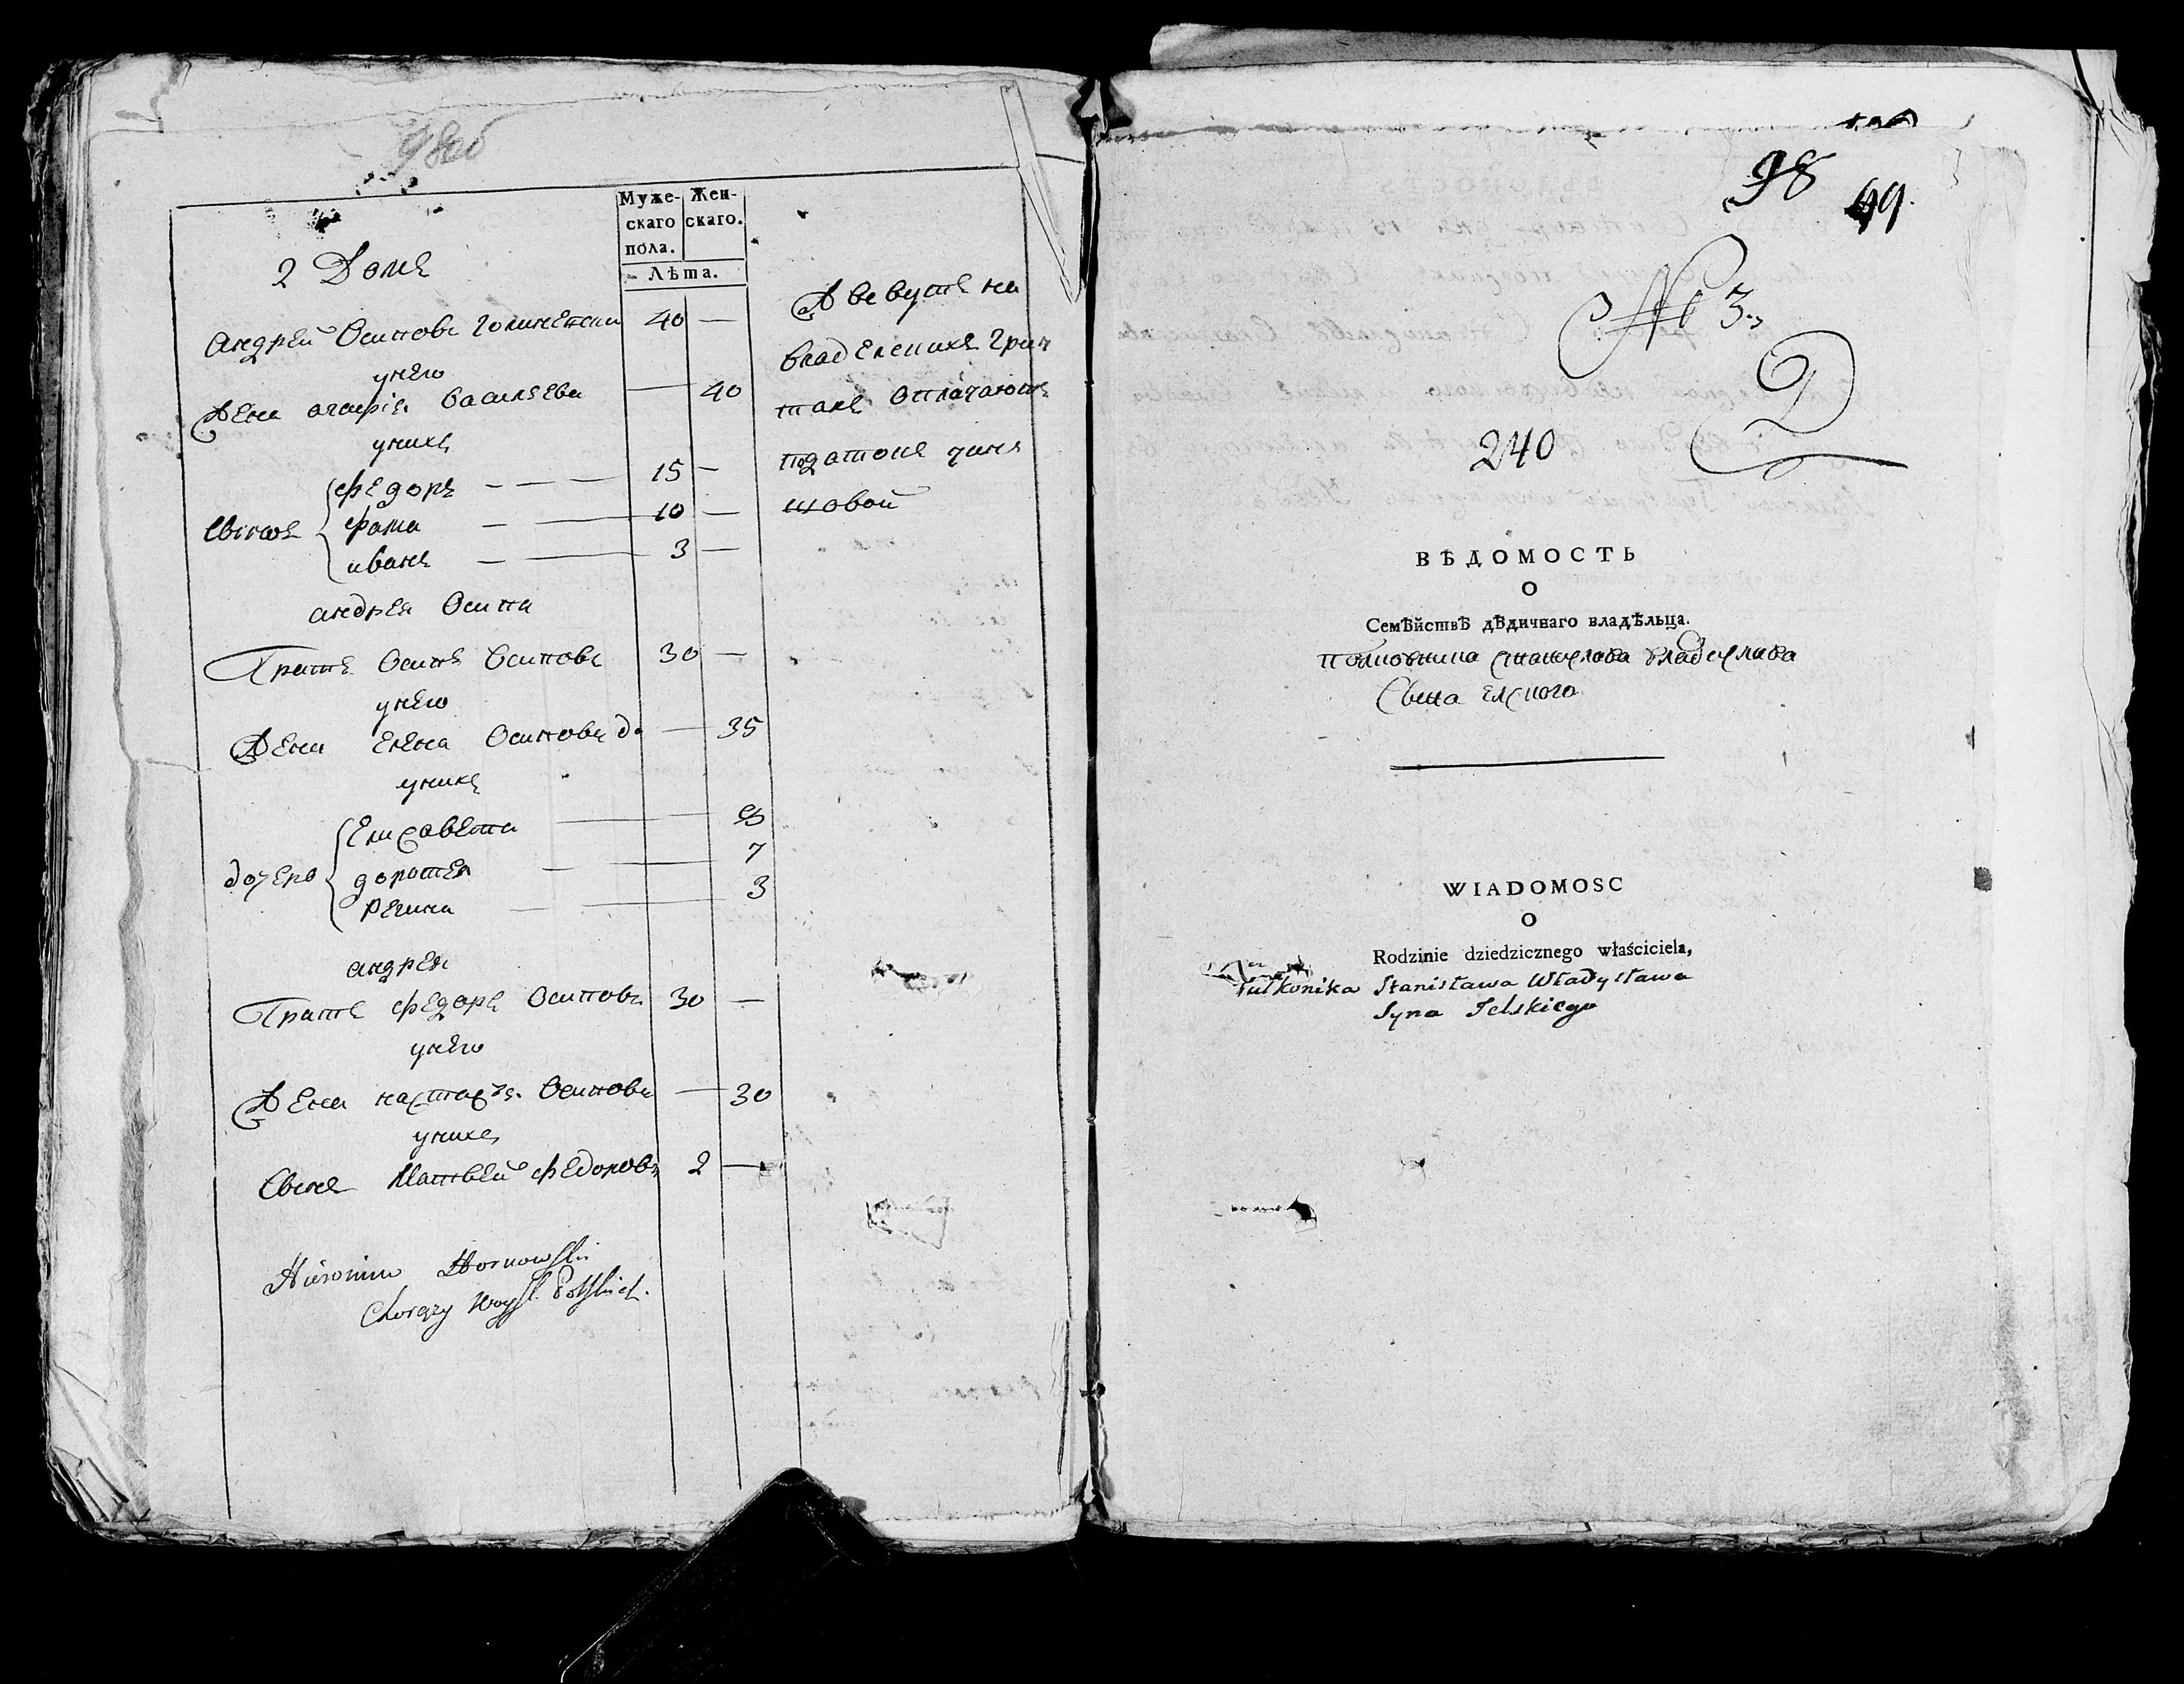 98об
Муже-
скаго
пола.
Жен-
скаго.
Лѣта.
2 Домъ
Андрей Осиповъ 40 —
унего
Жена Васильева — 40
унихъ
Сыновъ
Федоръ — — — 15 —
Фома — 10 —
иванъ — 3 —
андрея Осипа
Братъ Осипъ Осиповъ 30 —
унего
Жена Елена Осипова до — 35
унихъ
дочерь
Елисавета — 8
доротея — 7
Регина — 3
андрея
Братъ Федоръ Осиповъ 30 —
унего
Жена настасья Осипова — 30
унихъ
Сынъ Матвей Федоровъ 2 —
Живутъ на
владения
оплачают
податокъ чин
шовой
Hieronim
Chorąży Woys.
98
99.
№ 3.
240
ВѢДОМОСТЬ
О
Семѣйствѣ дѣдичнаго владѣльца.
полковника станислава владислава
Сына елского
WIADOMOSC
O
Rodzinie dziedzicznego właściciela,
Pułkonika Stanisława Władysława
Syna Jelskiego